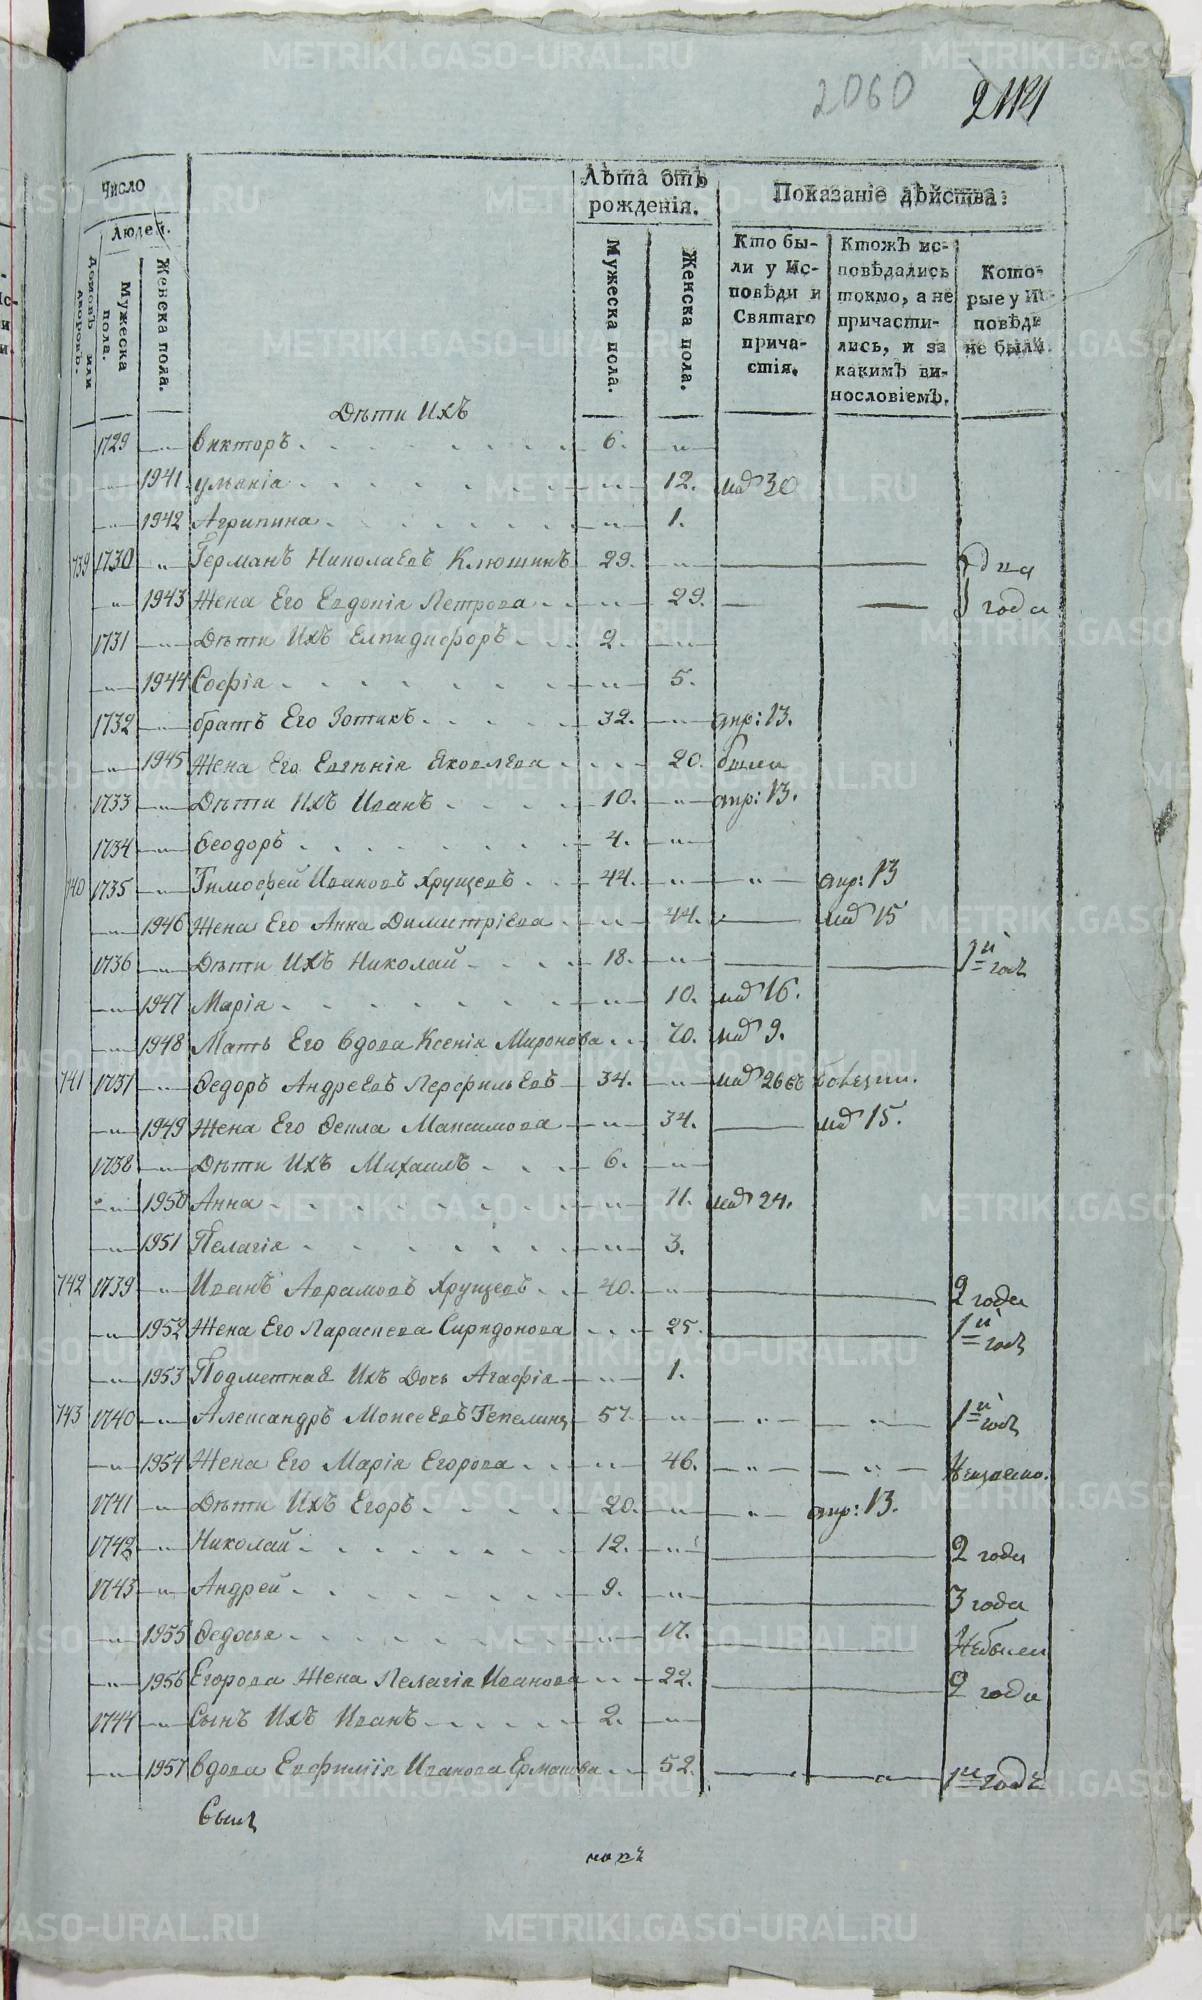 2060 2114
Число
Людей.
Домовъ или дворовъ.
Мужеска пола.
Женска пола.
Лѣта отъ рожденія.
Мужеска пола.
Женска пола.
Показаніе дѣйства:
Кто бы-
ли у Ис-
повѣди и
Святаго
прича-
стія.
Ктожъ ис-
повѣдались
токмо, а не
причасти-
лись, и за
какимъ ви-
нословіемъ.
Кото-
рые у Ис-
повѣди
не были.
Дѣти Ихъ
1729 Викторъ 6.
1941 Ульянія 12. мар 30
1942 Агрипина 1.
739 1730 Германъ Николаевъ Клюшинъ 29.
1943 Жена Его Евдокія Петрова 29. года
1731 Дѣти Ихъ Елпидифоръ 2.
1944 Софія 5.
1732 братъ Его Зотикъ 32. апр: 13.
1945 Жена Его Евгѣнія Яковлева 20. были
1733 Дѣти Ихъ Иванъ 10. апр: 13.
1734 Ѳеодоръ 4.
740 1735 Тимофей Ивановъ Хрущевъ 44. апр: 13
1946 Жена Его Анна Димитріева 44. мар 15
1736 Дѣти Ихъ Николай 18. 1й годъ
1947 Марія 10. мар 16.
1948 Мать Его Вдова Ксенія Миронова 70. мар 9.
741 1737 Ѳедоръ Андреевъ Перфильевъ 34. мар 26 въ болезни.
1949 Жена Его Ѳекла Максимова 34. мар 15.
1738 Дѣти Ихъ Михаилъ 6.
1950 Анна 11. мар 24.
1951 Пелагія 3.
742 1739 Иванъ Аврамовъ Хрущевъ 40. 2 года
1952 Жена Его Параскева Спридонова 25. 1й годъ
1953 Подметная Ихъ Дочь Агафія 1.
743 1740 Александръ Моисеевъ Тепелинъ 57. 1й годъ
1954 Жена Его Марія Егорова 46.
1741 Дѣти Ихъ Егоръ 20. апр: 13.
1742 Николай 12. 2 года
1743 Андрей 9. 3 года
1955 Ѳедосья 17. Небыли
1956 Егорова Жена Пелагія Иванова 22. 2 года
1744 Сынъ Ихъ Иванъ 2.
1957 Вдова Евфимія Иванова Ермакова 52. 1й годъ
Сынъ
METRIKI.GASO-URAL.RU